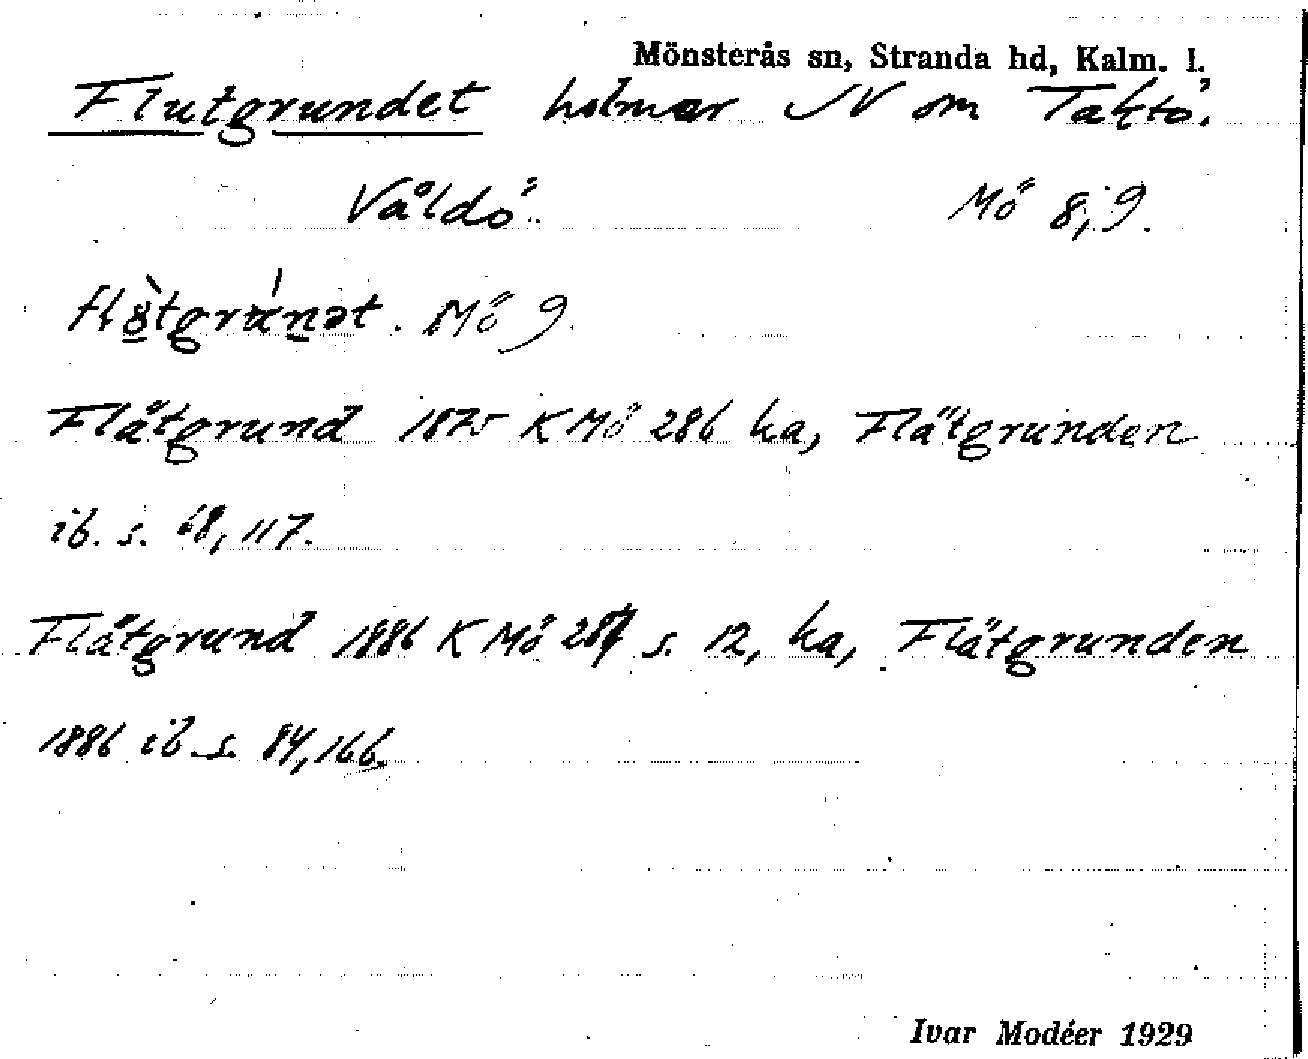 Mönsterås sn, Stranda hd, Kalm. l.
Flutgrundet holmar N om Taktö.
Våldö. Mö 8, 9.
Mö 9.
Flåtgrund 1875 K Mö 286 ka, Flätgrunden
ib. s. 68, 117.
Flåtgrund 1886 K Mö 287 s. 12, ka, Flätgrunden
1886 ib s. 84, 166.
Ivar Modéer 1929